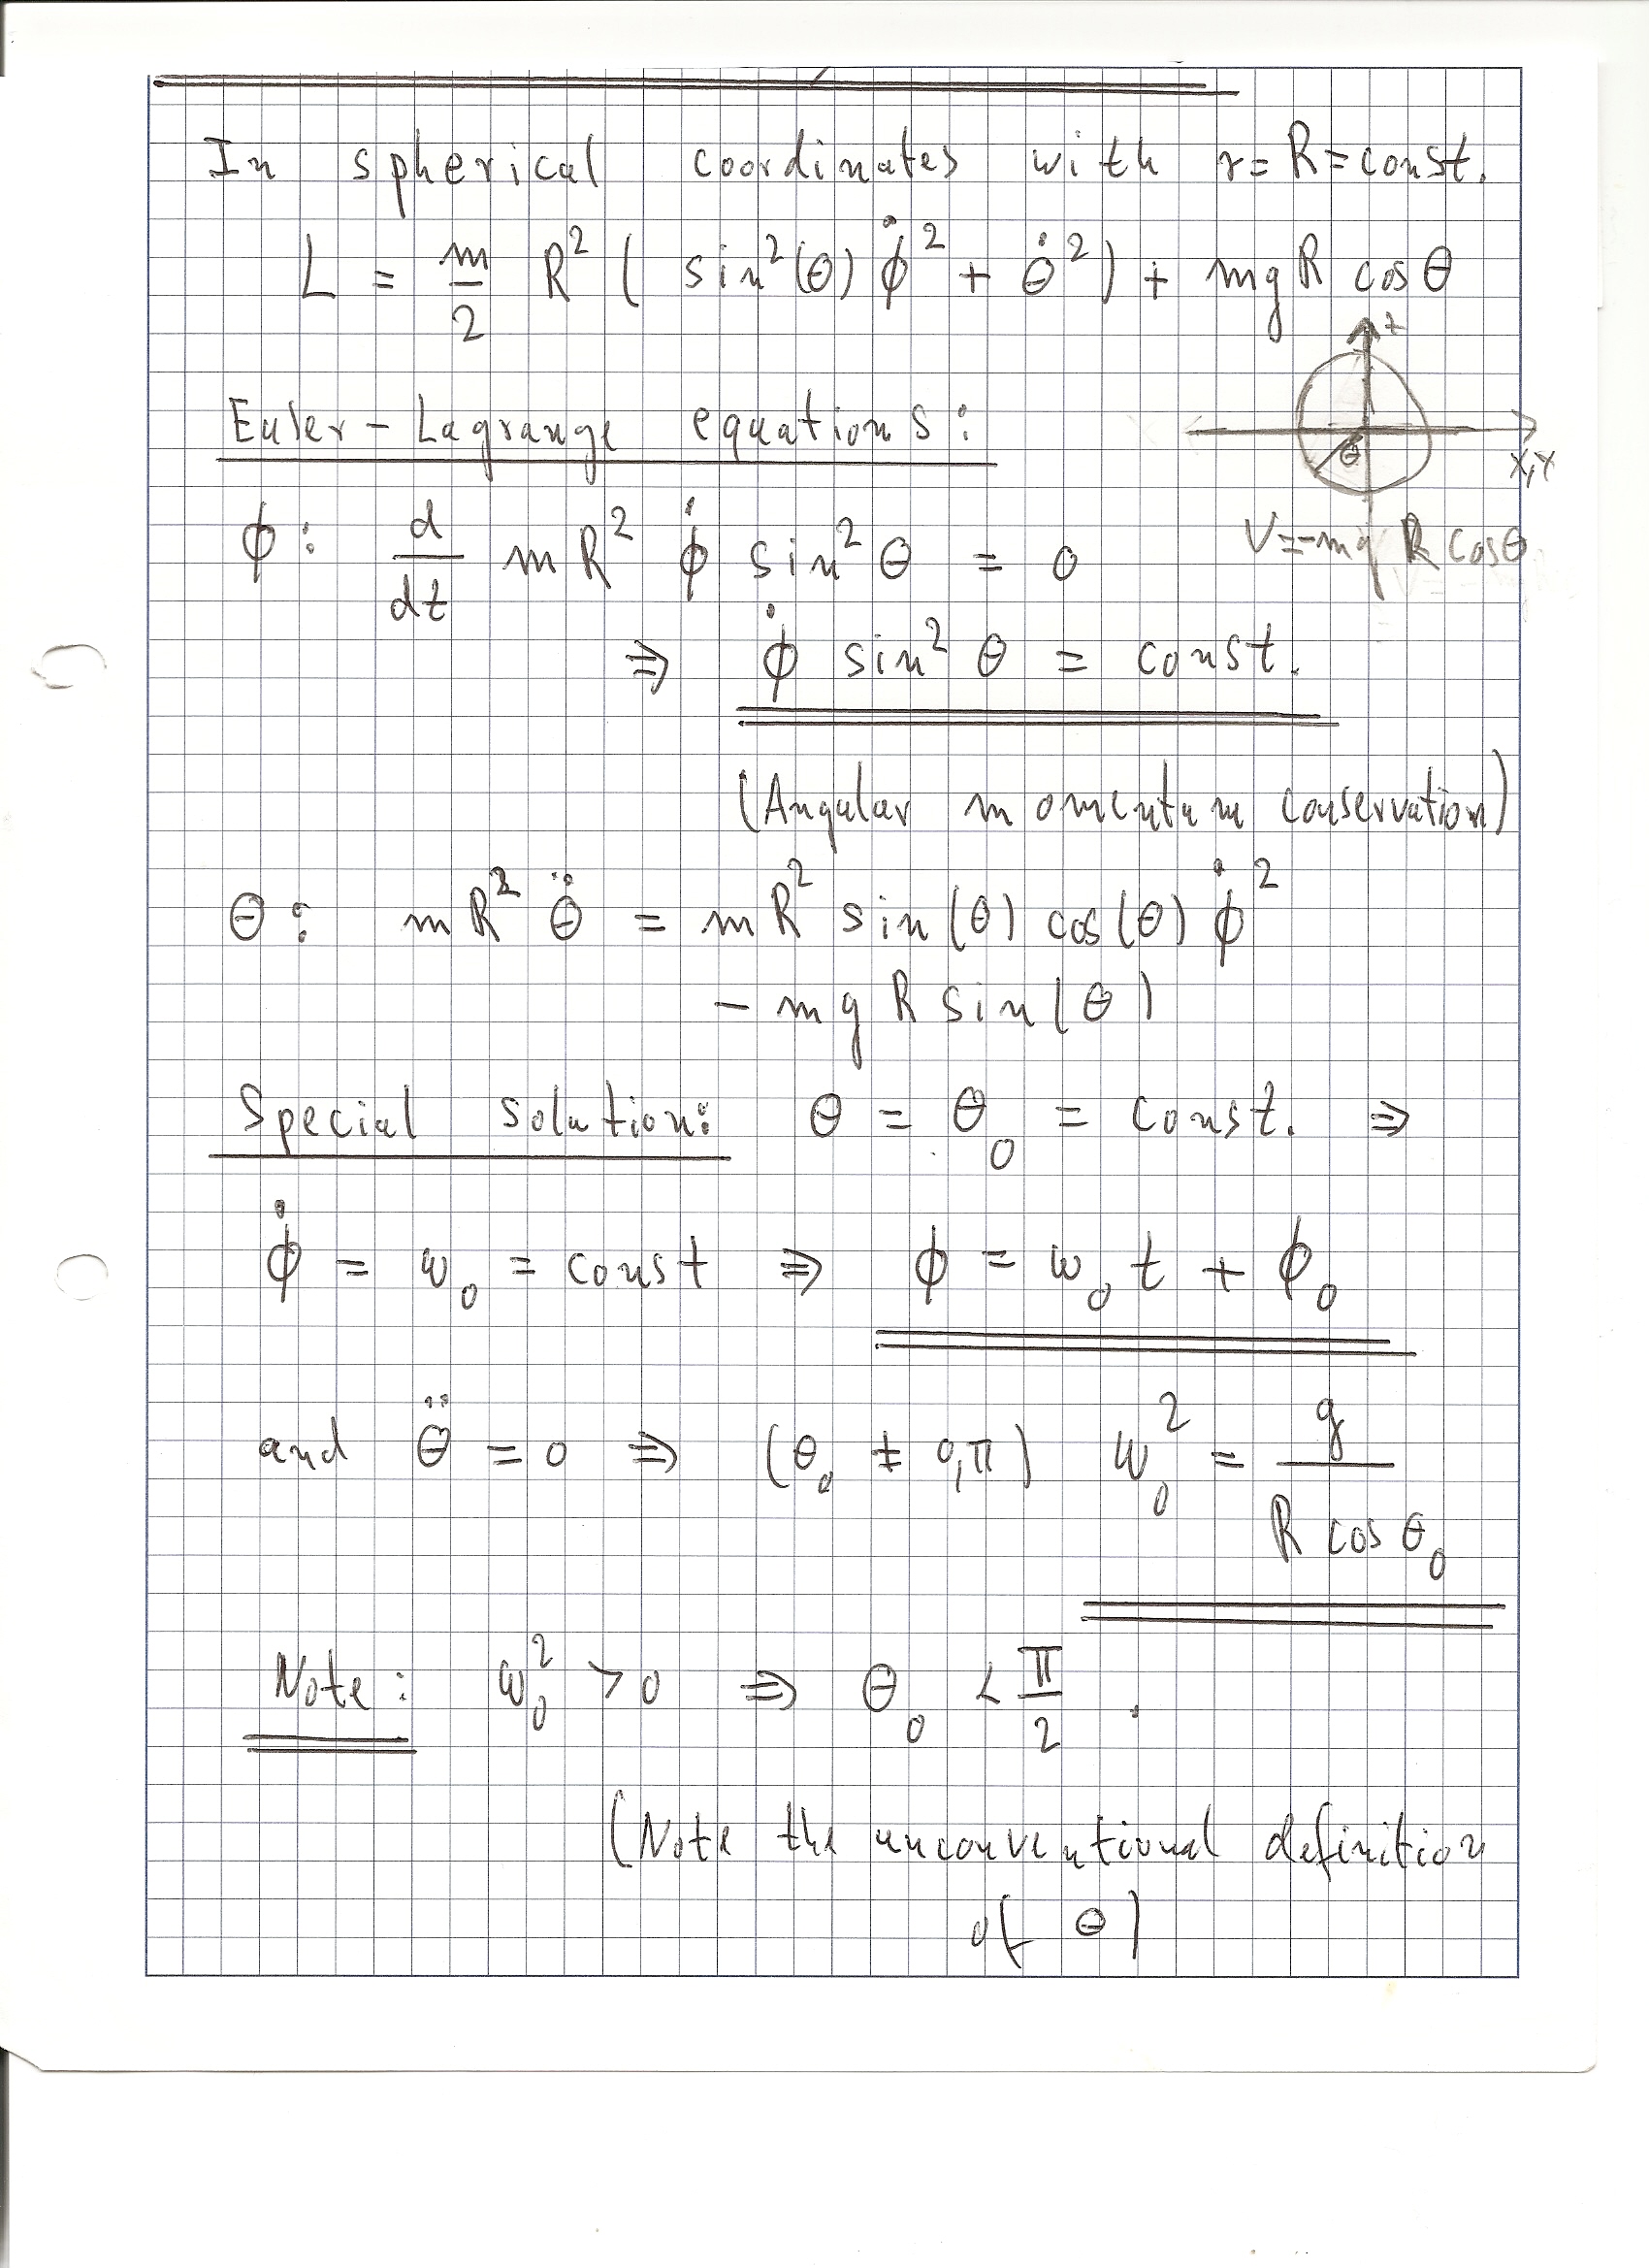 In spherical coordinates with r = R = const.
L = m/2 R² ( sin²(θ) ϕ̇² + θ̇² ) + mg R cos θ
z
Euler-Lagrange equations:
θ
x,y
ϕ: d/dt m R² ϕ̇ sin² θ = 0
V = -mg R cos θ
⇒ ϕ̇ sin² θ = const.
(Angular momentum conservation)
θ: m R² θ̈ = m R² sin(θ) cos(θ) ϕ̇²
- mg R sin(θ)
Special solution: θ = θ₀ = const. ⇒
ϕ̇ = ω₀ = const ⇒ ϕ = ω₀ t + ϕ₀
and θ̈ = 0 ⇒ (θ₀ ≠ 0,π) ω₀² = g / R cos θ₀
Note: ω₀² > 0 ⇒ θ₀ < π/2 .
(Note the unconventional definition
of θ)